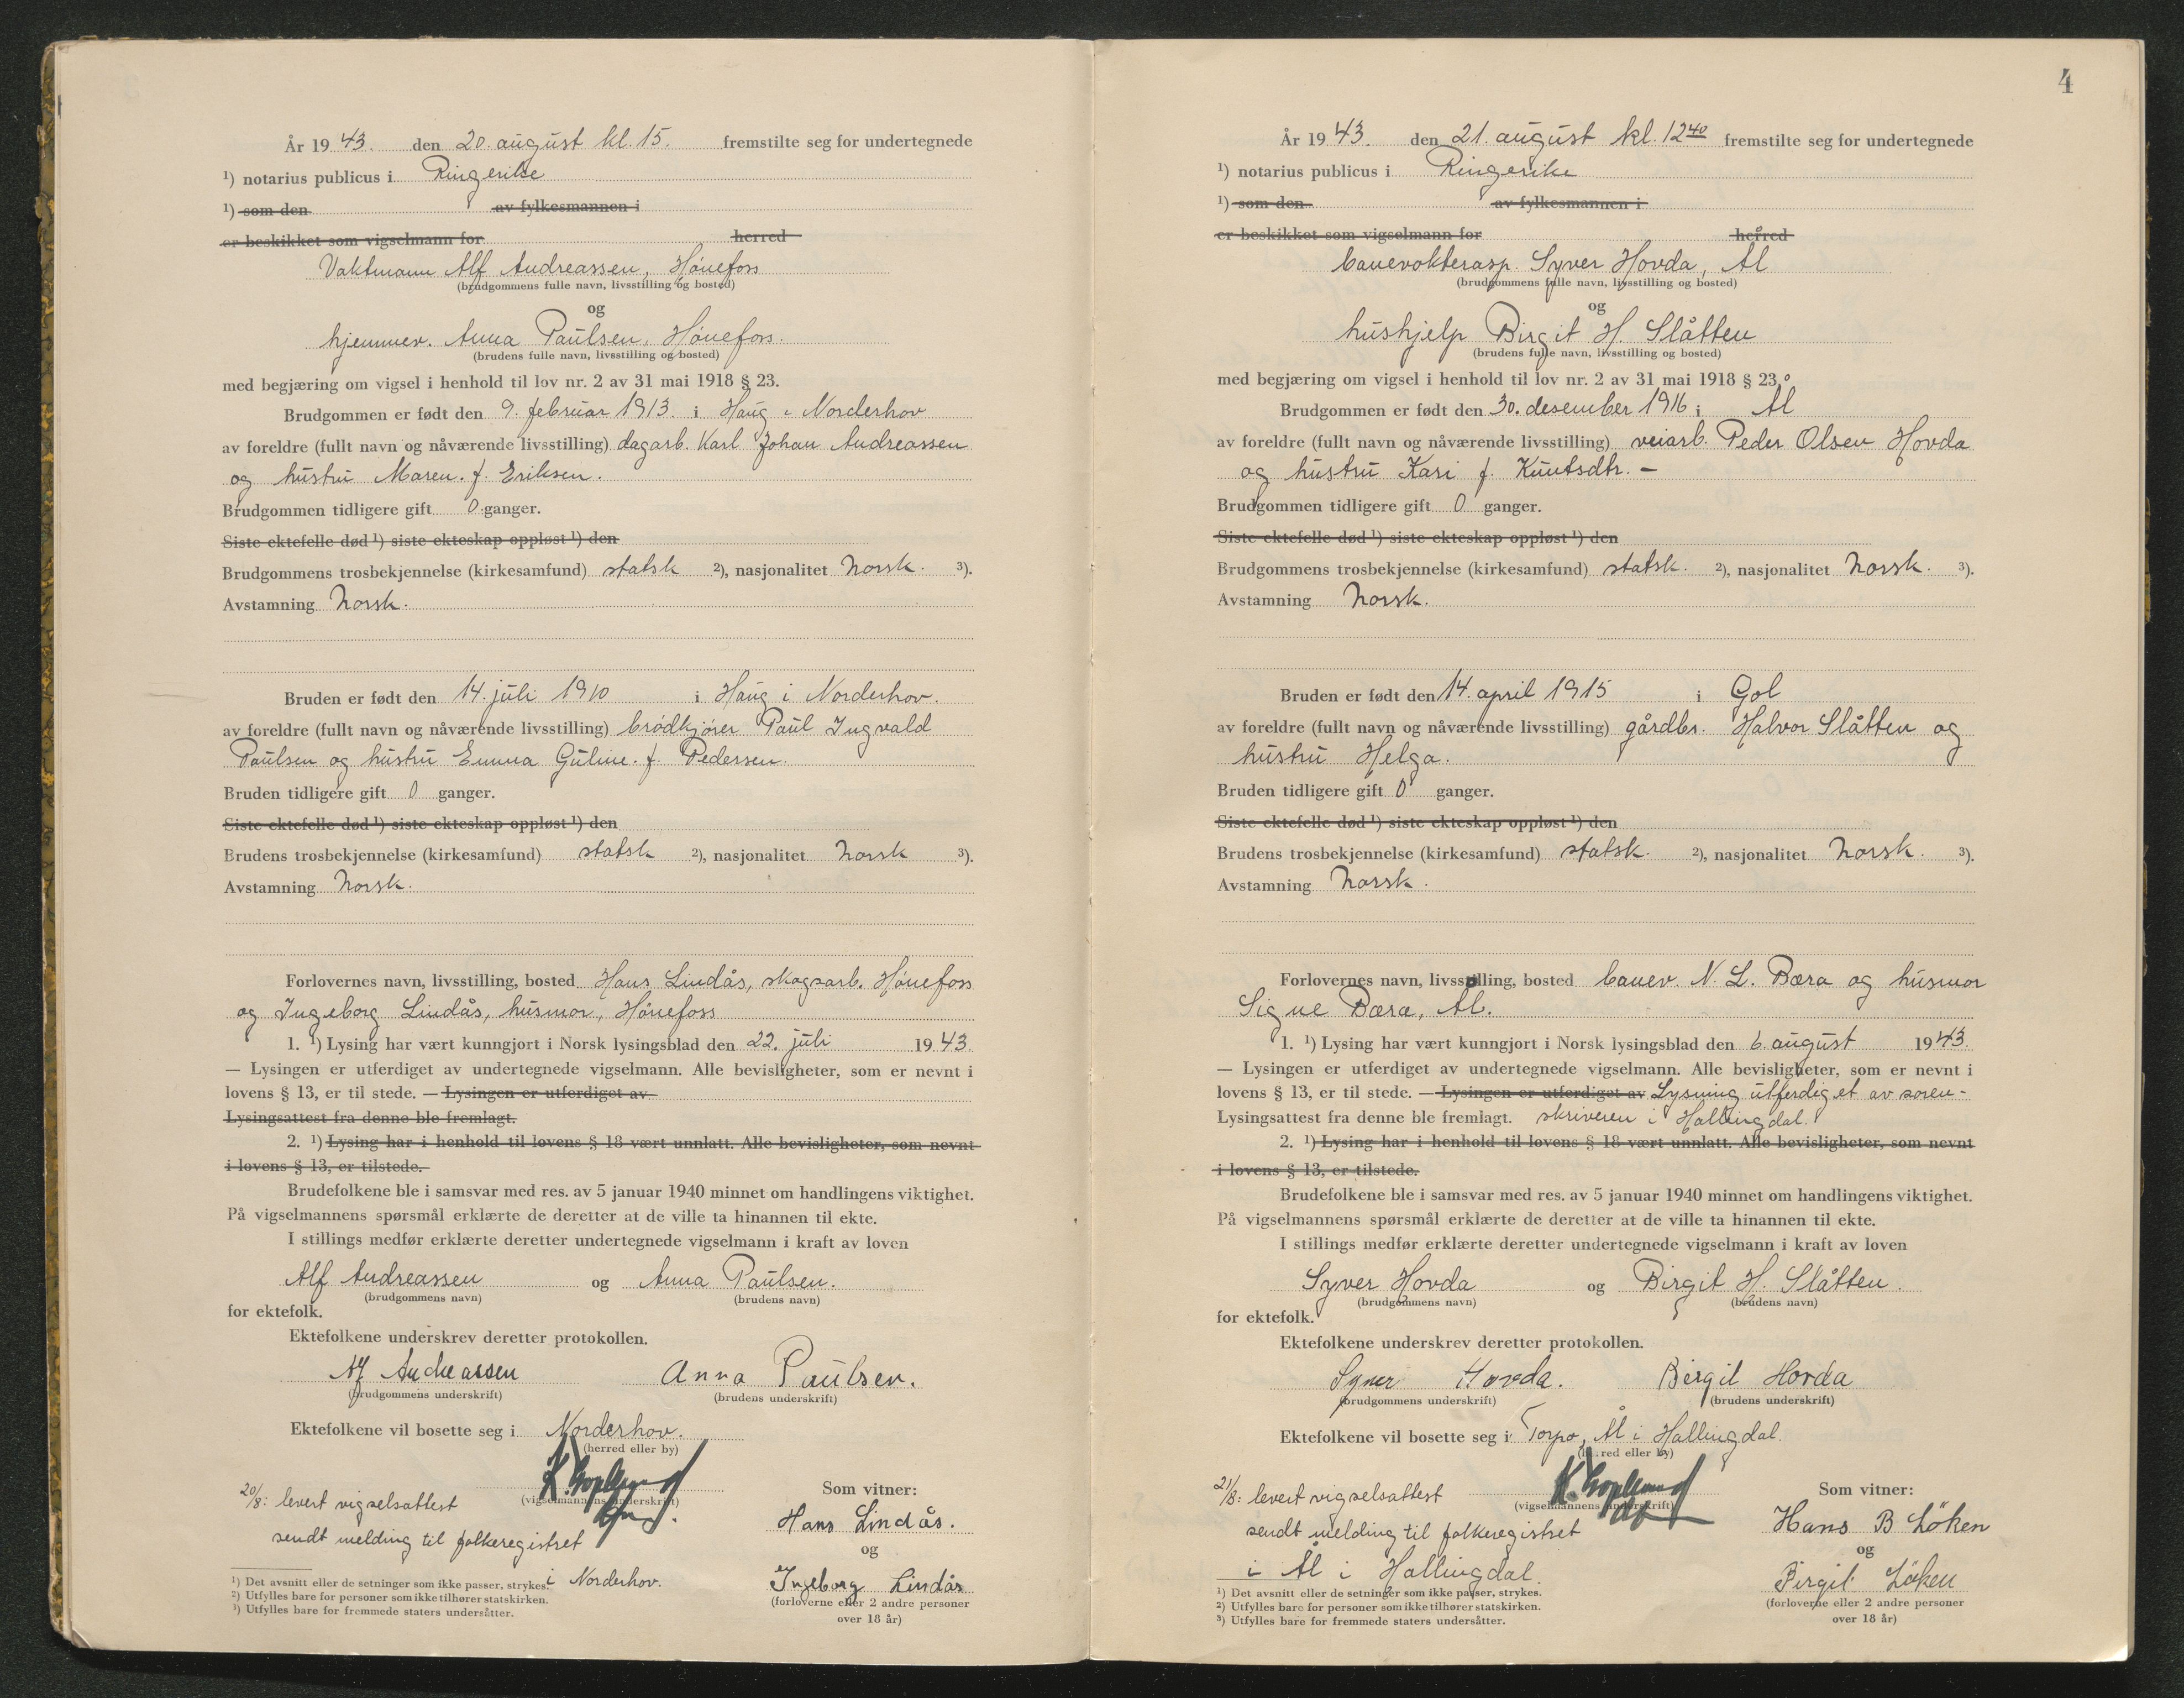 År 1943. den 20. august kl. 15. fremstilte seg for undertegnede
¹) notarius publicus i Ringerike
¹) som den av fylkesmannen i
er beskikket som vigselmann for herred
Vaktmann Alf Andreassen, Hönefoss
(brudgommens fulle navn, livsstilling og bosted)
og
hjemmev. Anna Paulsen, Hönefoss.
(brudens fulle navn, livsstilling og bosted)
med begjæring om vigsel i henhold til lov nr. 2 av 31 mai 1918 § 23.
Brudgommen er født den 9. februar 1913. i Haug i Norderhov
av foreldre (fullt navn og nåværende livsstilling) dagarb. Karl Johan Andreassen
og hustru Maren. f. Eriksen.
Brudgommen tidligere gift 0 ganger.
Siste ektefelle død ¹) siste ekteskap oppløst ¹) den
Brudgommens trosbekjennelse (kirkesamfund) statsk ²), nasjonalitet Norsk. ³).
Avstamning Norsk.
Bruden er født den 14. juli 1910 i Haug i Norderhov.
av foreldre (fullt navn og nåværende livsstilling) brödkjörer Paul Ingvald
Paulsen og hustru Emma Guline. f. Pedersen.
Bruden tidligere gift 0 ganger.
Siste ektefelle død ¹) siste ekteskap oppløst ¹) den
Brudens trosbekjennelse (kirkesamfund) statsk ²), nasjonalitet Norsk ³).
Avstamning Norsk.
Forlovernes navn, livsstilling, bosted Hans Lindås, skogsarb. Hönefoss
og Ingeborg Lindås, husmor, Hönefoss
1. ¹) Lysing har vært kunngjort i Norsk lysingsblad den 22. juli 1943
— Lysingen er utferdiget av undertegnede vigselmann. Alle bevisligheter, som er nevnt i
lovens § 13, er til stede. — Lysingen er utferdiget av
Lysingsattest fra denne ble fremlagt.
2. ¹) Lysing har i henhold til lovens § 18 vært unnlatt. Alle bevisligheter, som nevnt
i lovens § 13, er tilstede.
Brudefolkene ble i samsvar med res. av 5 januar 1940 minnet om handlingens viktighet.
På vigselmannens spørsmål erklærte de deretter at de ville ta hinannen til ekte.
I stillings medfør erklærte deretter undertegnede vigselmann i kraft av loven
Alf Andreassen og Anna Paulsen.
(brudgommens navn) (brudens navn)
for ektefolk.
Ektefolkene underskrev deretter protokollen.
Alf Andreassen Anna Paulsen.
(brudgommens underskrift) (brudens underskrift)
Ektefolkene vil bosette seg i Norderhov.
(herred eller by)
20/8: levert vigselsattest
(vigselmannens underskrift)
sendt melding til folkeregistret
i Norderhov.
Som vitner:
Hans Lindås.
og
Ingeborg Lindås
(forloverne eller 2 andre personer
over 18 år)
¹) Det avsnitt eller de setninger som ikke passer, strykes.
²) Utfylles bare for personer som ikke tilhører statskirken.
³) Utfylles bare for fremmede staters undersåtter.
4
År 1943. den 21. august kl. 12⁴⁰ fremstilte seg for undertegnede
¹) notarius publicus i Ringerike
¹) som den av fylkesmannen i
er beskikket som vigselmann for herred
banevokterasp. Syver Hovda, Ål
(brudgommens fulle navn, livsstilling og bosted)
og
hushjelp Birgit H. Slåtten
(brudens fulle navn, livsstilling og bosted)
med begjæring om vigsel i henhold til lov nr. 2 av 31 mai 1918 § 23.
Brudgommen er født den 30. desember 1916 i Ål
av foreldre (fullt navn og nåværende livsstilling) veiarb. Peder Olsen Hovda
og hustru Kari f. Knutsdtr. —
Brudgommen tidligere gift 0 ganger.
Siste ektefelle død ¹) siste ekteskap oppløst ¹) den
Brudgommens trosbekjennelse (kirkesamfund) statsk. ²), nasjonalitet Norsk. ³).
Avstamning Norsk.
Bruden er født den 14. april 1915 i Gol
av foreldre (fullt navn og nåværende livsstilling) gårdbr. Halvor Slåtten og
hustru Helga.
Bruden tidligere gift 0 ganger.
Siste ektefelle død ¹) siste ekteskap oppløst ¹) den
Brudens trosbekjennelse (kirkesamfund) statsk. ²), nasjonalitet Norsk. ³).
Avstamning Norsk.
Forlovernes navn, livsstilling, bosted banev. N. L. Bæra og husmor
Signe Bæra, Ål.
1. ¹) Lysing har vært kunngjort i Norsk lysingsblad den 6. august 1943.
— Lysingen er utferdiget av undertegnede vigselmann. Alle bevisligheter, som er nevnt i
lovens § 13, er til stede. — Lysingen er utferdiget av Lysning utferdiget av soren-
Lysingsattest fra denne ble fremlagt. skriveren i Hallingdal.
2. ¹) Lysing har i henhold til lovens § 18 vært unnlatt. Alle bevisligheter, som nevnt
i lovens § 13, er tilstede.
Brudefolkene ble i samsvar med res. av 5 januar 1940 minnet om handlingens viktighet.
På vigselmannens spørsmål erklærte de deretter at de ville ta hinannen til ekte.
I stillings medfør erklærte deretter undertegnede vigselmann i kraft av loven
Syver Hovda og Birgit H. Slåtten.
(brudgommens navn) (brudens navn)
for ektefolk.
Ektefolkene underskrev deretter protokollen.
Syver Hovda. Birgit Hovda
(brudgommens underskrift) (brudens underskrift)
Ektefolkene vil bosette seg i Torpo, Ål i Hallingdal.
(herred eller by)
21/8: levert vigselsattest
(vigselmannens underskrift)
sendt melding til folkeregistret
i Ål i Hallingdal.
Som vitner:
Hans B Löken
og
Birgit Löken
(forloverne eller 2 andre personer
over 18 år)
¹) Det avsnitt eller de setninger som ikke passer, strykes.
²) Utfylles bare for personer som ikke tilhører statskirken.
³) Utfylles bare for fremmede staters undersåtter.